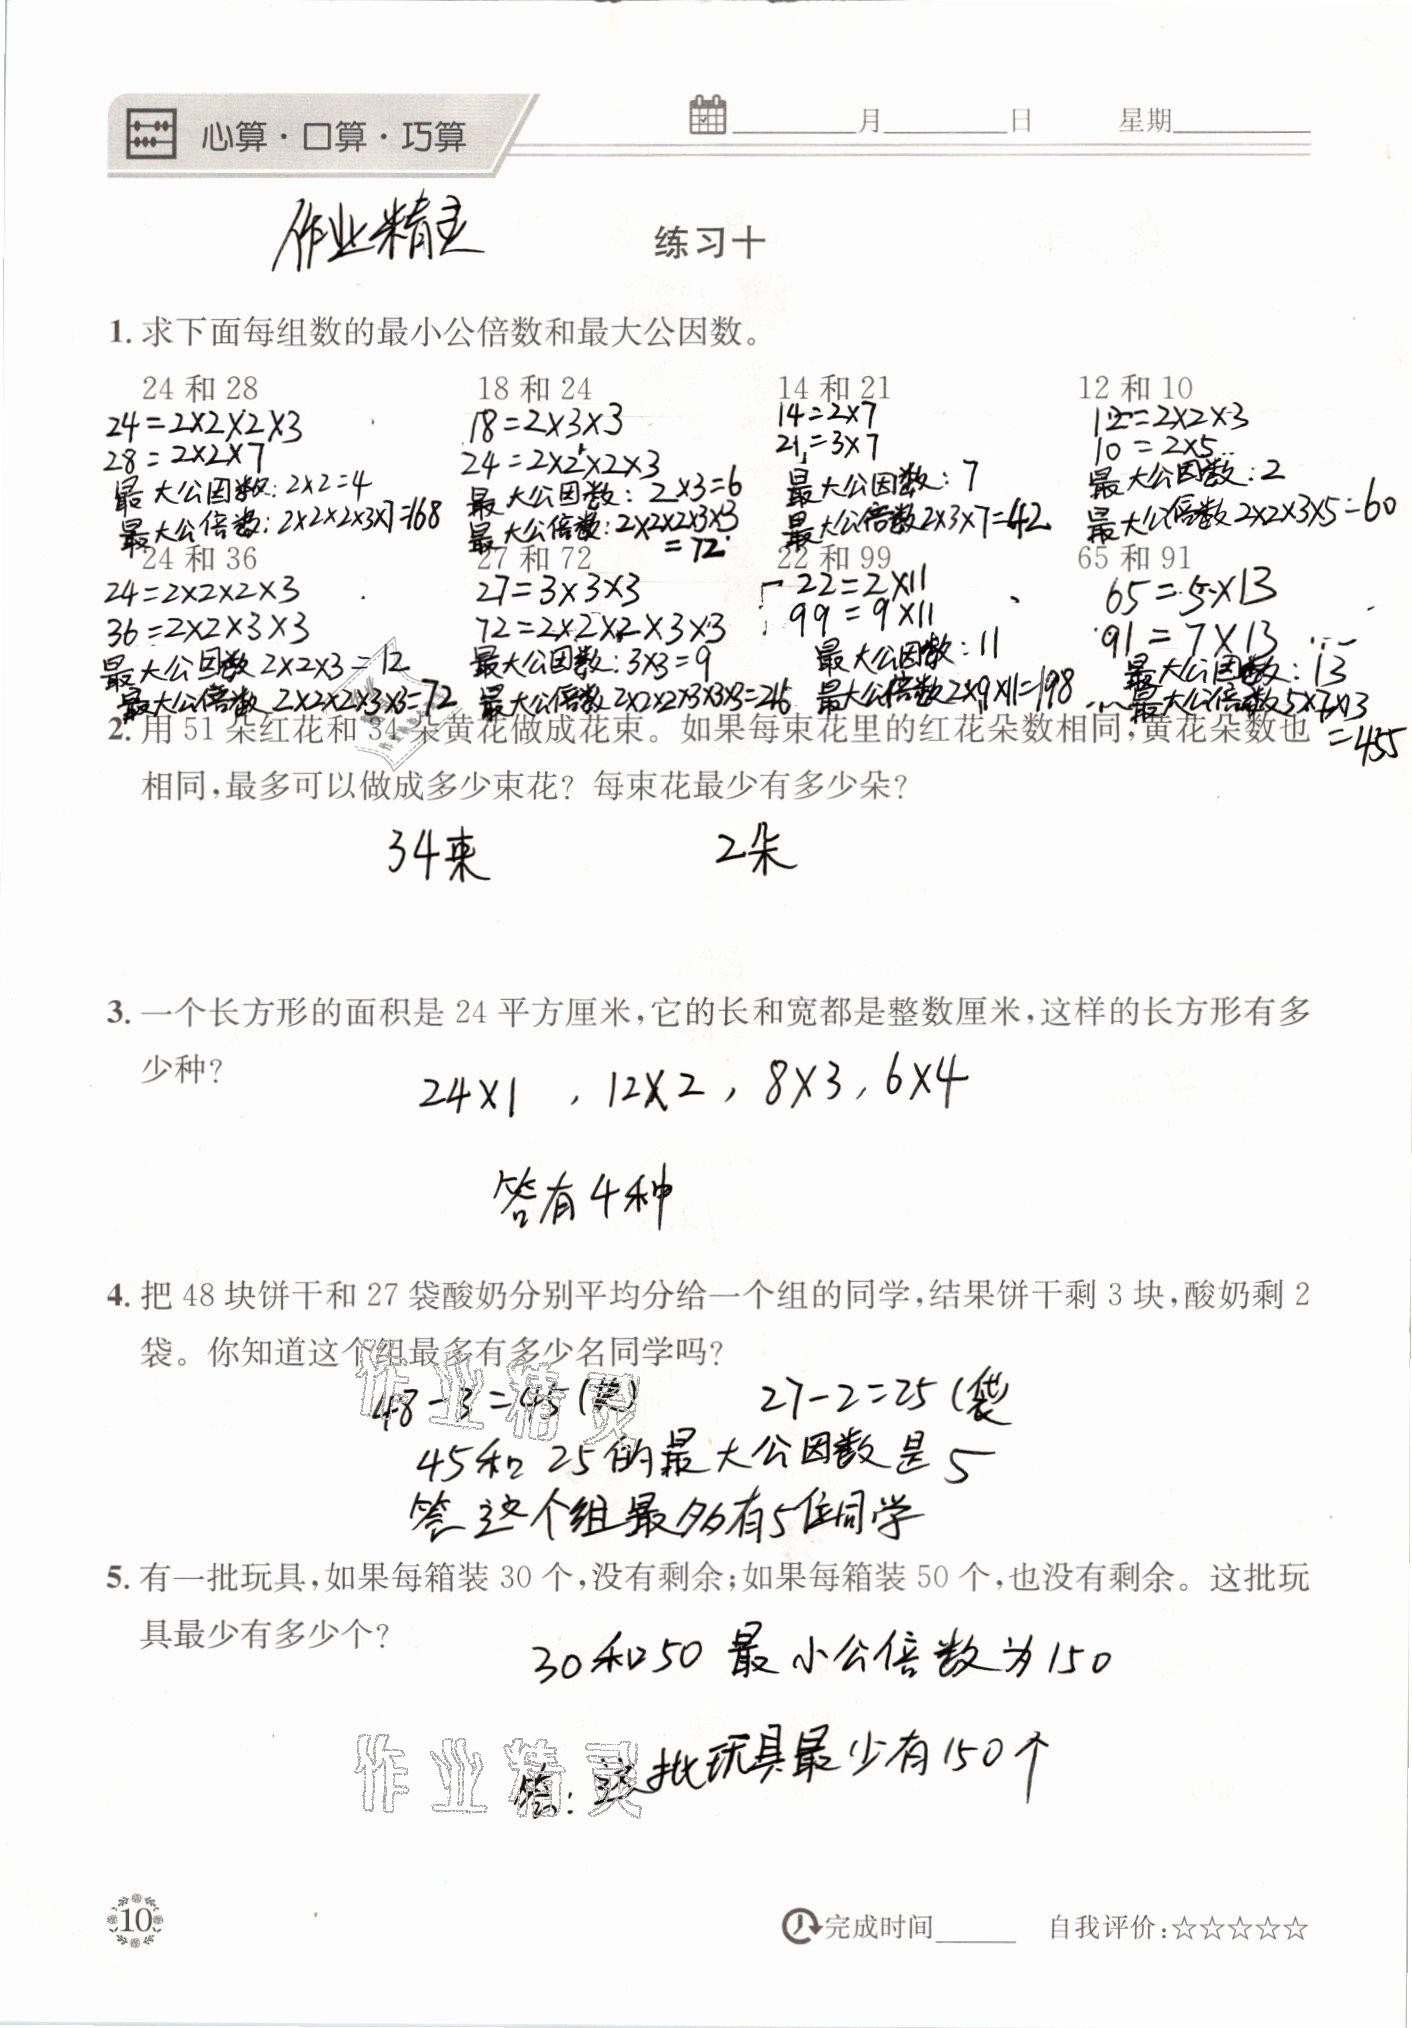 心算·口算·巧算
月 日 星期
作业精灵
练习十
1. 求下面每组数的最小公倍数和最大公因数。
24 和 28 18 和 24 14 和 21 12 和 10
24=2×2×2×3 18=2×3×3 14=2×7 12=2×2×3
28=2×2×7 24=2×2×2×3 21=3×7 10=2×5
最大公因数:2×2=4 最大公因数:2×3=6 最大公因数:7 最大公因数:2
最大公倍数:2×2×2×3×7=168 最大公倍数:2×2×2×3×3 最大公倍数2×3×7=42 最大公倍数2×2×3×5=60
=72
24 和 36 27 和 72 22 和 99 65 和 91
24=2×2×2×3 27=3×3×3 22=2×11 65=5×13
36=2×2×3×3 72=2×2×2×3×3 99=9×11 91=7×13
最大公因数2×2×3=12 最大公因数:3×3=9 最大公因数:11 最大公因数:13
最大公倍数2×2×2×3×3=72 最大公倍数2×2×2×3×3×3=216 最大公倍数2×9×11=198 最大公倍数5×7×13
=455
2. 用 51 朵红花和 34 朵黄花做成花束。如果每束花里的红花朵数相同,黄花朵数也
相同,最多可以做成多少束花? 每束花最少有多少朵?
34来 2朵
3. 一个长方形的面积是 24 平方厘米,它的长和宽都是整数厘米,这样的长方形有多
少种?
24×1 , 12×2 , 8×3 , 6×4
答有4种
4. 把 48 块饼干和 27 袋酸奶分别平均分给一个组的同学,结果饼干剩 3 块,酸奶剩 2
袋。你知道这个组最多有多少名同学吗?
作业精灵
48-3=45( ) 27-2=25(袋
45和25的最大公因数是5
答这个组最多有5位同学
5. 有一批玩具,如果每箱装 30 个,没有剩余;如果每箱装 50 个,也没有剩余。这批玩
具最少有多少个?
30和50最小公倍数为150
作业精灵
答:这批玩具最少有150个
10
完成时间 自我评价:☆☆☆☆☆